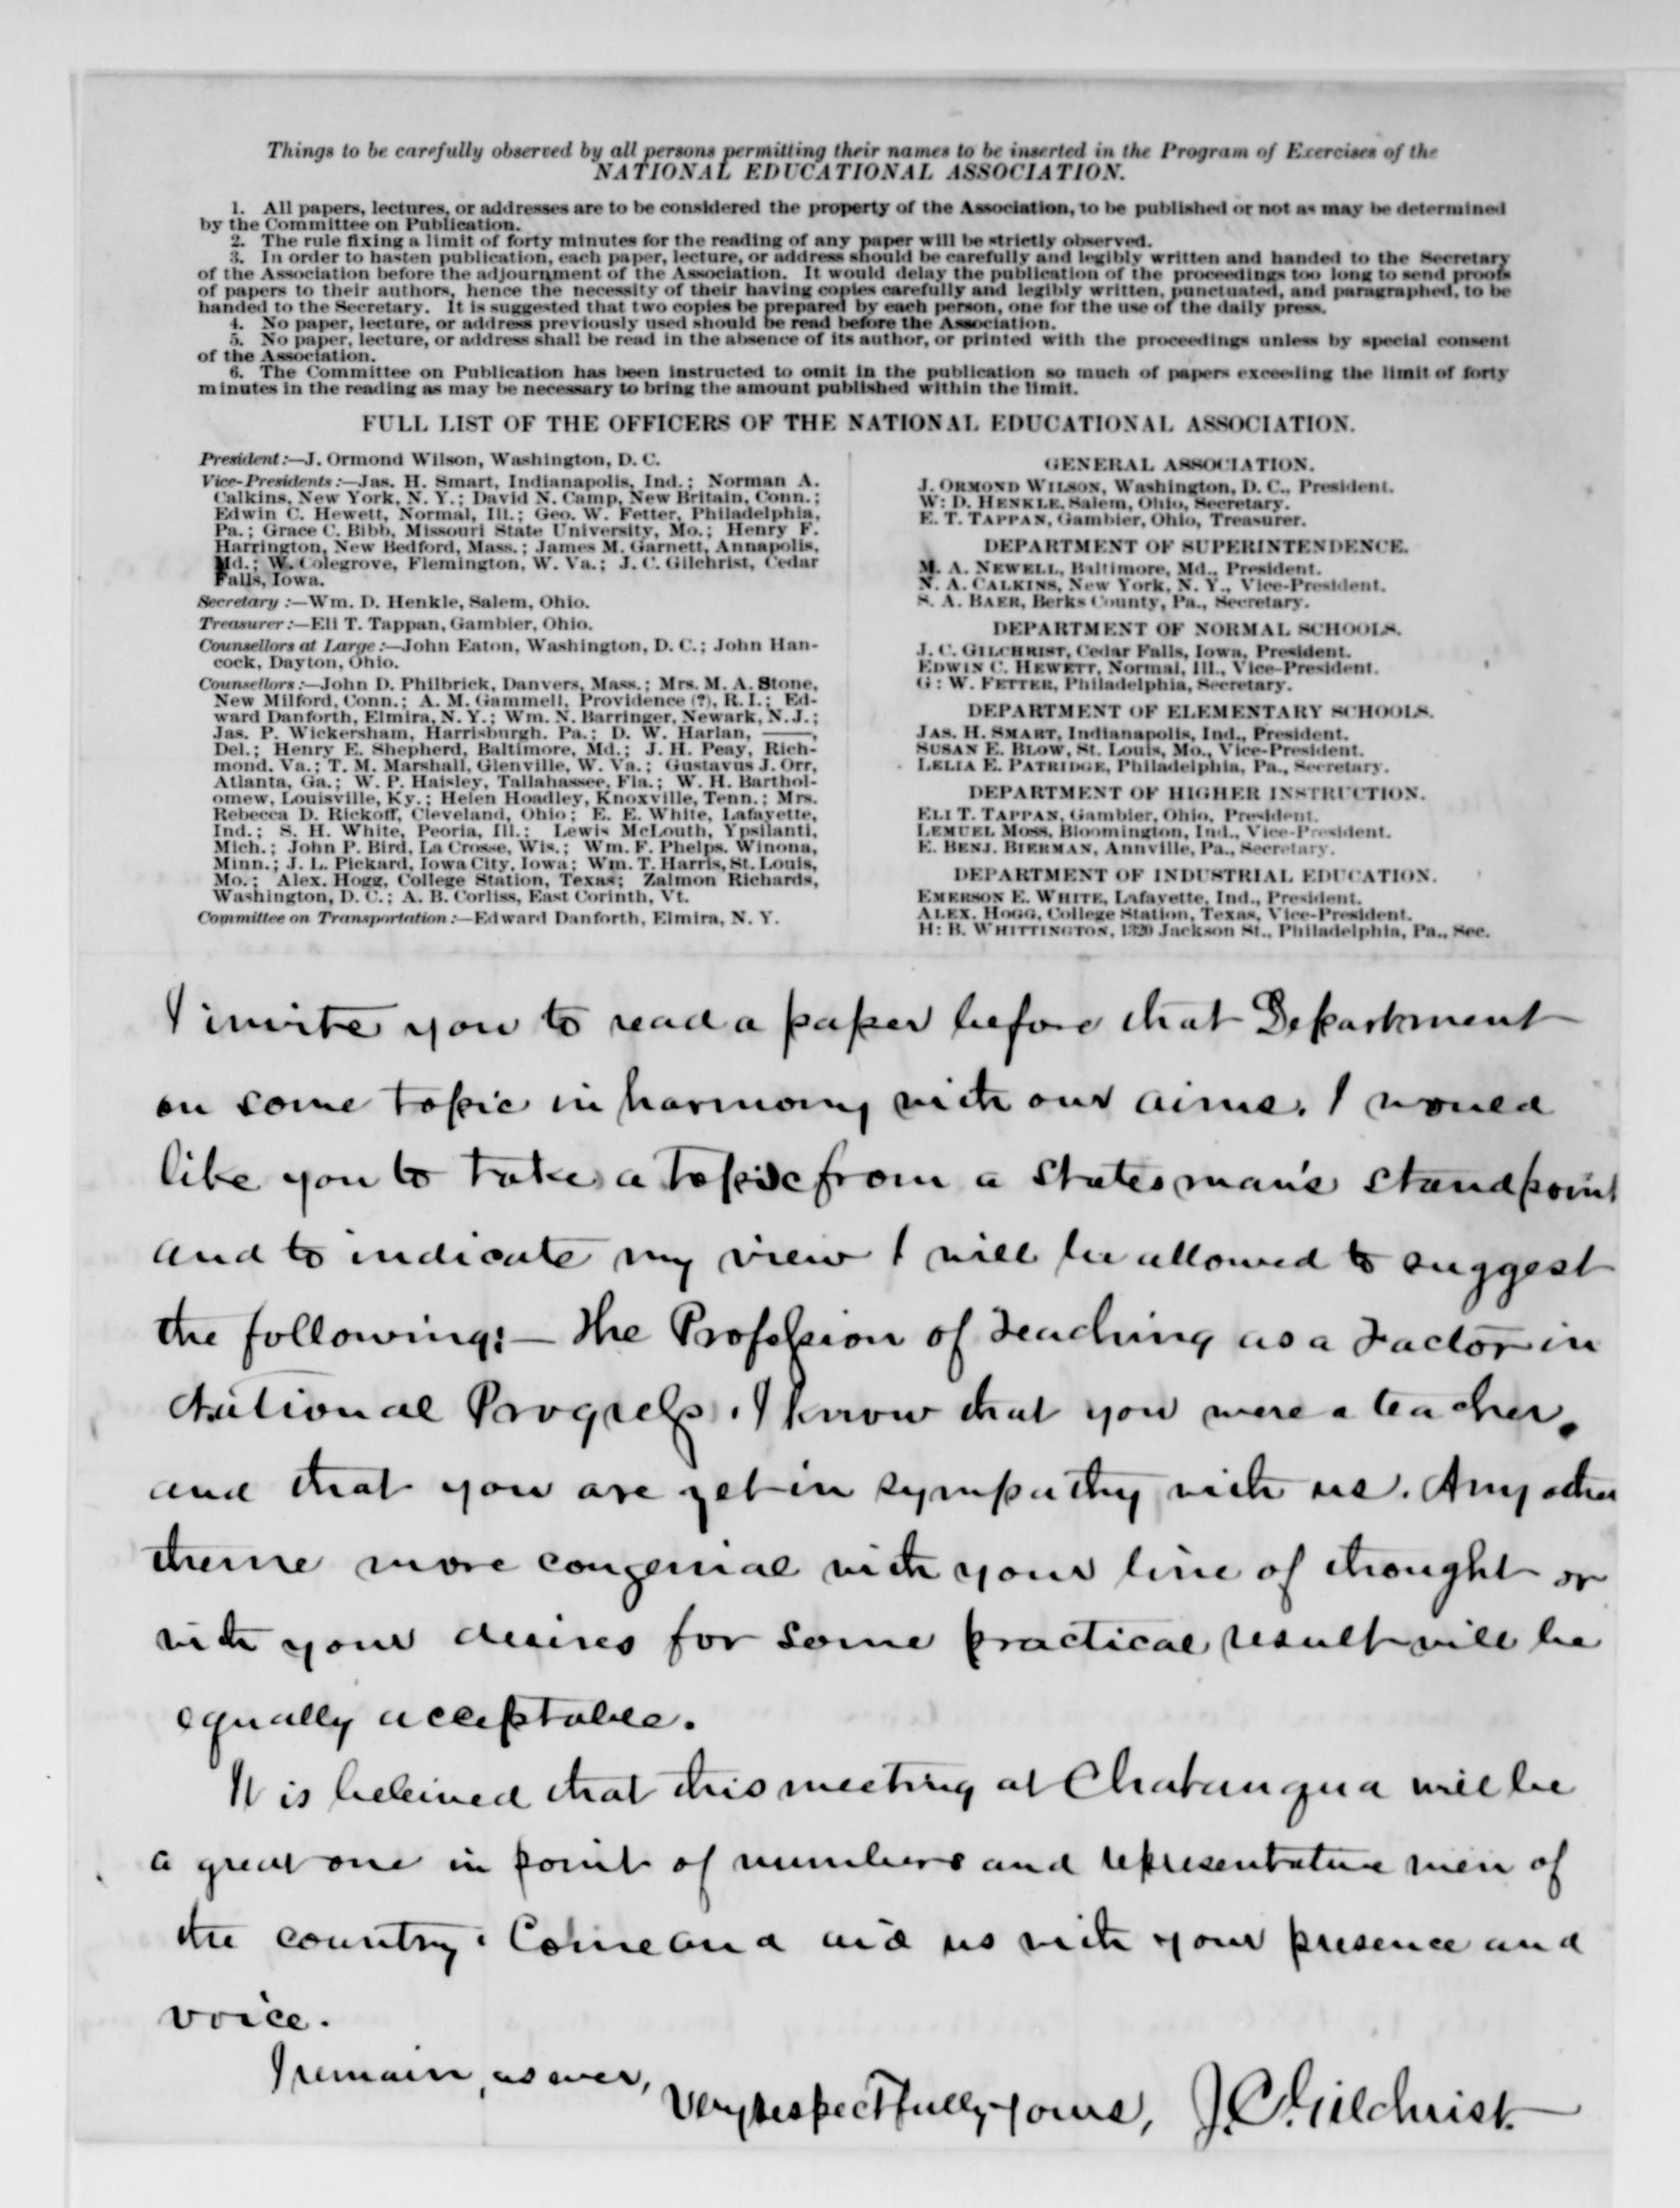 Things to be carefully observed by all persons permitting their names to be inserted in the Program of Exercises of the
NATIONAL EDUCATIONAL ASSOCIATION.
1. All papers, lectures, or addresses are to be considered the property of the Association, to be published or not as may be determined
by the Committee on Publication.
2. The rule fixing a limit of forty minutes for the reading of any paper will be strictly observed.
3. In order to hasten publication, each paper, lecture, or address should be carefully and legibly written and handed to the Secretary
of the Association before the adjournment of the Association. It would delay the publication of the proceedings too long to send proofs
of papers to their authors, hence the necessity of their having copies carefully and legibly written, punctuated, and paragraphed, to be
handed to the Secretary. It is suggested that two copies be prepared by each person, one for the use of the daily press.
4. No paper, lecture, or address previously used should be read before the Association.
5. No paper, lecture, or address shall be read in the absence of its author, or printed with the proceedings unless by special consent
of the Association.
6. The Committee on Publication has been instructed to omit in the publication so much of papers exceeding the limit of forty
minutes in the reading as may be necessary to bring the amount published within the limit.
FULL LIST OF THE OFFICERS OF THE NATIONAL EDUCATIONAL ASSOCIATION.
President:—J. Ormond Wilson, Washington, D. C.
Vice-Presidents:—Jas. H. Smart, Indianapolis, Ind.; Norman A.
Calkins, New York, N. Y.; David N. Camp, New Britain, Conn.;
Edwin C. Hewett, Normal, Ill.; Geo. W. Fetter, Philadelphia,
Pa.; Grace C. Bibb, Missouri State University, Mo.; Henry F.
Harrington, New Bedford, Mass.; James M. Garnett, Annapolis,
Md.; W. Colegrove, Flemington, W. Va.; J. C. Gilchrist, Cedar
Falls, Iowa.
Secretary:—Wm. D. Henkle, Salem, Ohio.
Treasurer:—Eli T. Tappan, Gambier, Ohio.
Counsellors at Large:—John Eaton, Washington, D. C.; John Han-
cock, Dayton, Ohio.
Counsellors:—John D. Philbrick, Danvers, Mass.; Mrs. M. A. Stone,
New Milford, Conn.; A. M. Gammell, Providence (?), R. I.; Ed-
ward Danforth, Elmira, N. Y.; Wm. N. Barringer, Newark, N. J.;
Jas. P. Wickersham, Harrisburgh. Pa.; D. W. Harlan, ——,
Del.; Henry E. Shepherd, Baltimore, Md.; J. H. Peay, Rich-
mond. Va.; T. M. Marshall, Glenville, W. Va.; Gustavus J. Orr,
Atlanta, Ga.; W. P. Haisley, Tallahassee, Fla.; W. H. Barthol-
omew, Louisville, Ky.; Helen Hoadley, Knoxville, Tenn.; Mrs.
Rebecca D. Rickoff, Cleveland, Ohio; E. E. White, Lafayette,
Ind.; S. H. White, Peoria, Ill.; Lewis McLouth, Ypsilanti,
Mich.; John P. Bird, La Crosse, Wis.; Wm. F. Phelps. Winona,
Minn.; J. L. Pickard, Iowa City, Iowa; Wm. T. Harris, St. Louis,
Mo.; Alex. Hogg, College Station, Texas; Zalmon Richards,
Washington, D. C.; A. B. Corliss, East Corinth, Vt.
Committee on Transportation:—Edward Danforth, Elmira, N. Y.
GENERAL ASSOCIATION.
J. ORMOND WILSON, Washington, D. C., President.
W: D. HENKLE, Salem, Ohio, Secretary.
E. T. TAPPAN, Gambier, Ohio, Treasurer.
DEPARTMENT OF SUPERINTENDENCE.
M. A. NEWELL, Baltimore, Md., President.
N. A. CALKINS, New York, N. Y., Vice-President.
S. A. BAER, Berks County, Pa., Secretary.
DEPARTMENT OF NORMAL SCHOOLS.
J. C. GILCHRIST, Cedar Falls, Iowa, President.
EDWIN C. HEWETT, Normal, Ill., Vice-President.
G: W. FETTER, Philadelphia, Secretary.
DEPARTMENT OF ELEMENTARY SCHOOLS.
JAS. H. SMART, Indianapolis, Ind., President.
SUSAN E. BLOW, St. Louis, Mo., Vice-President.
LELIA E. PATRIDGE, Philadelphia, Pa., Secretary.
DEPARTMENT OF HIGHER INSTRUCTION.
ELI T. TAPPAN, Gambier, Ohio, President.
LEMUEL MOSS, Bloomington, Ind., Vice-President.
E. BENJ. BIERMAN, Annville, Pa., Secretary.
DEPARTMENT OF INDUSTRIAL EDUCATION.
EMERSON E. WHITE, Lafayette, Ind., President.
ALEX. HOGG, College Station, Texas, Vice-President.
H: B. WHITTINGTON, 1320 Jackson St., Philadelphia, Pa., Sec.
I invite you to read a paper before that Department
on some topic in harmony with our aims. I would
like you to take a topic from a statesman's standpoint
and to indicate my view I will be allowed to suggest
the following:— The Profession of Teaching as a Factor in
National Progress. I know that you were a teacher,
and that you are yet in sympathy with us. Any other
theme more congenial with your line of thought or
with your desires for some practical result will be
equally acceptable.
It is beleived that this meeting at Chatauqua will be
a great one in point of numbers and representative men of
the country. Come and aid us with your presence and
voice.
I remain, as ever,
Very respectfully yours, J. C. Gilchrist.